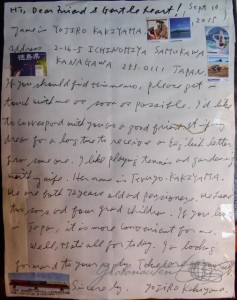 Hi, Dear Friend & Gentle heart! (Sept 10)
2015
Name is YOJIRO KAKIYAMA.
address 2-16-5 ICHINOMIYA SAMUKAWA
KANAGAWA 253-0111 JAPAN.
If you should find this memo, please get in
touch with me as soon as possible. I'd like
to correspond with you as a good friend. It is my
dream for a long time to receive an English letter
from someone. I like playing tennis and gardening
with my wife. Her name is KAKIYAMA.
We are both 72 years old and pensioners. We have
two sons and four grand children. If you live
in Japan, it is more convenient for me.
Well, that's all for today. I'm looking
forward to your reply. Take
Sincerely. YOJIRO Kakiyama